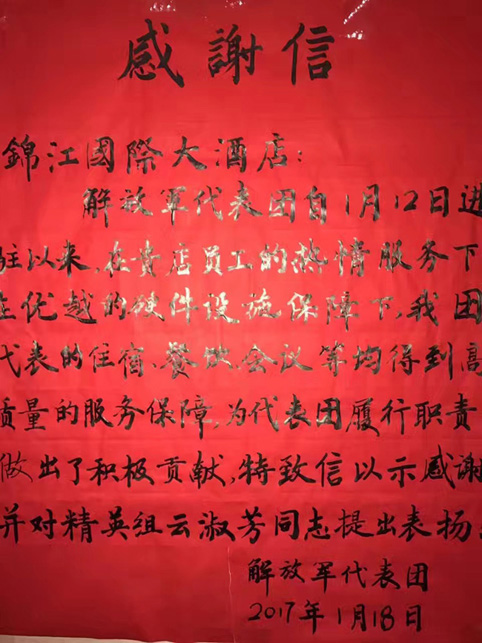 感謝信
錦江國際大酒店:
解放军代表团自1月12日进
驻以来,在贵店员工的热情服务下
在优越的硬件设施保障下,我团
代表的住宿、餐饮、会议等均得到高
质量的服务保障,为代表团履行职责
做出了积极贡献,特致信以示感谢
并对精英组云淑芳同志提出表扬
解放军代表团
2017年1月18日